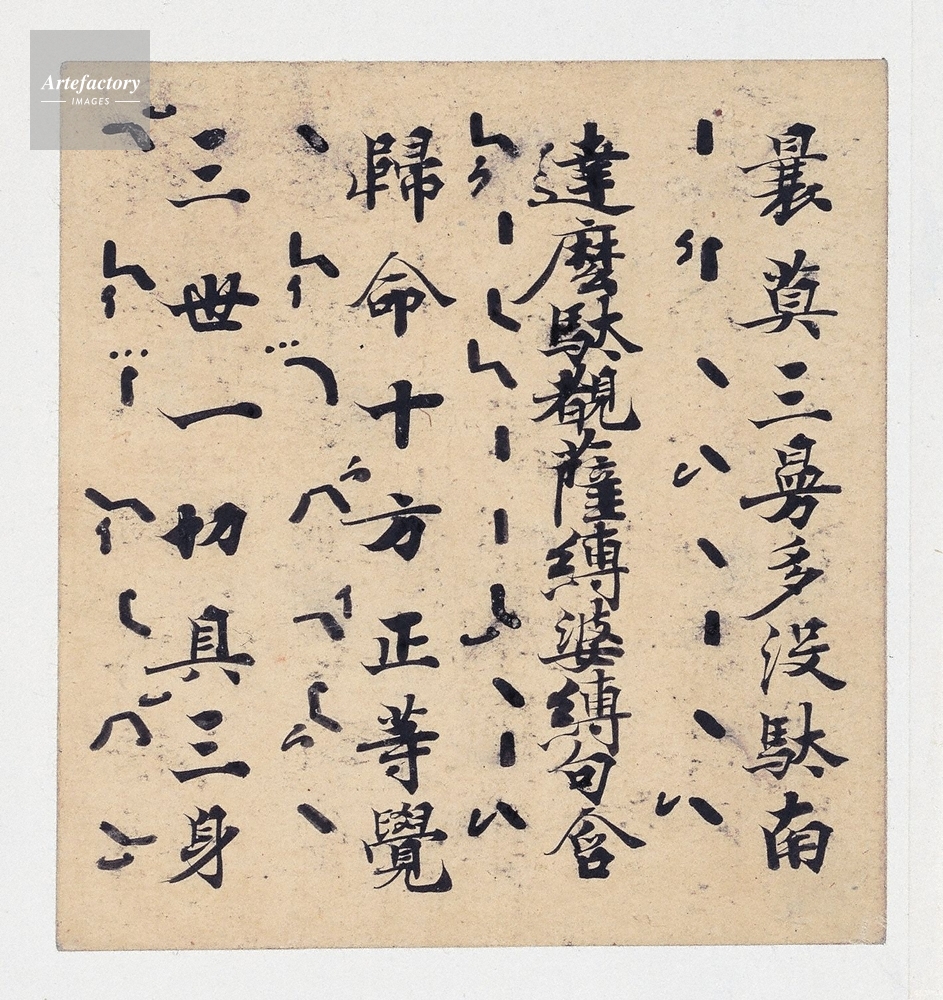 曩莫三曼多没駄南
達麼駄覩薩縛婆縛句含
歸命十方正等覺
三世一切具三身
Artefactory
IMAGES